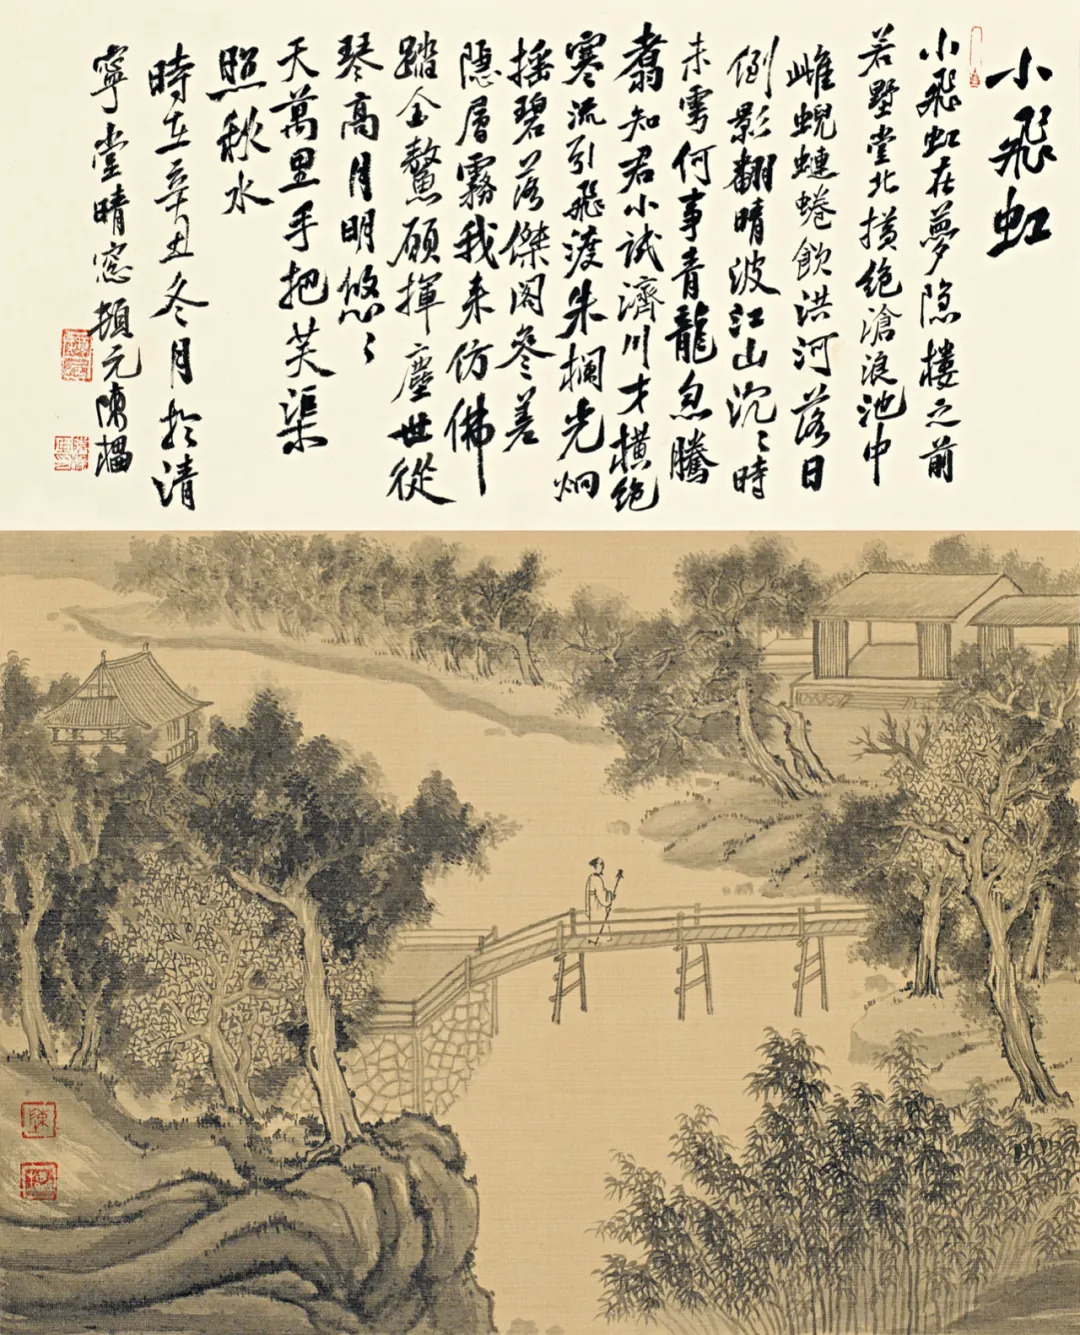 小飛虹
小飛虹在夢隠樓之前
若墅堂北橫絶滄浪池中
雌蜺蜷飲洪河落日
倒影翻晴波江山沉〻時
未雩何事青龍忽騰
翥知君小試濟川才橫絶
寒流引飛渡朱欄光炯
搖碧落傑閣參差
隠層霧我来仿佛
踏金鰲願揮塵世從
琴高月明悠〻
天萬里手把芙渠
照秋水
時在辛丑冬月於清
寧堂晴窓頓元陳搵